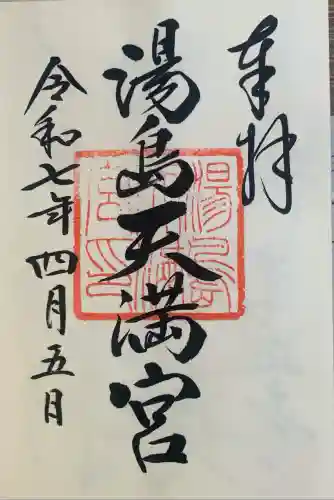 奉拝
湯島天満宮
令和七年四月五日